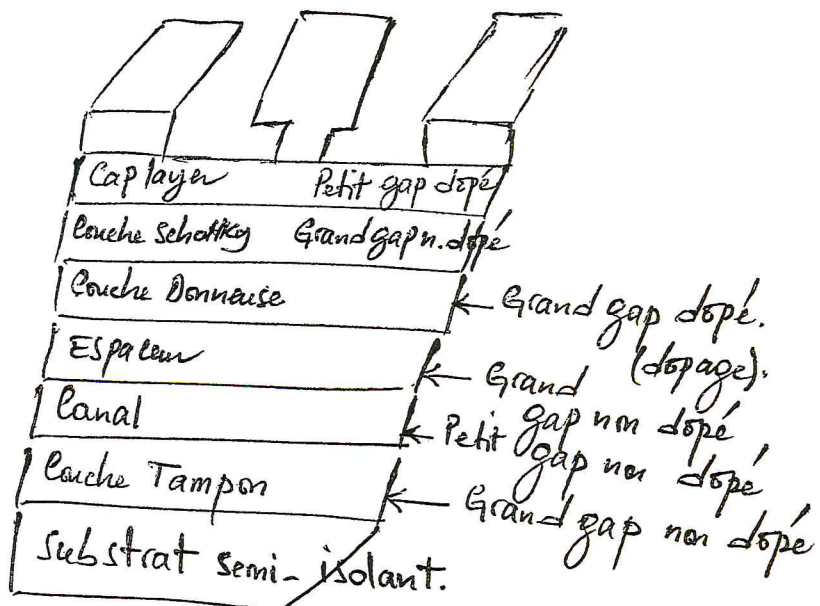 Cap layer Petit gap dopé
Couche Schottky Grand gap n. dopé
Couche Donneuse Grand gap dopé.
(dopage).
Espaceur Grand gap non dopé
Canal Petit gap non dopé
Couche Tampon Grand gap non dopé
Substrat semi-isolant.